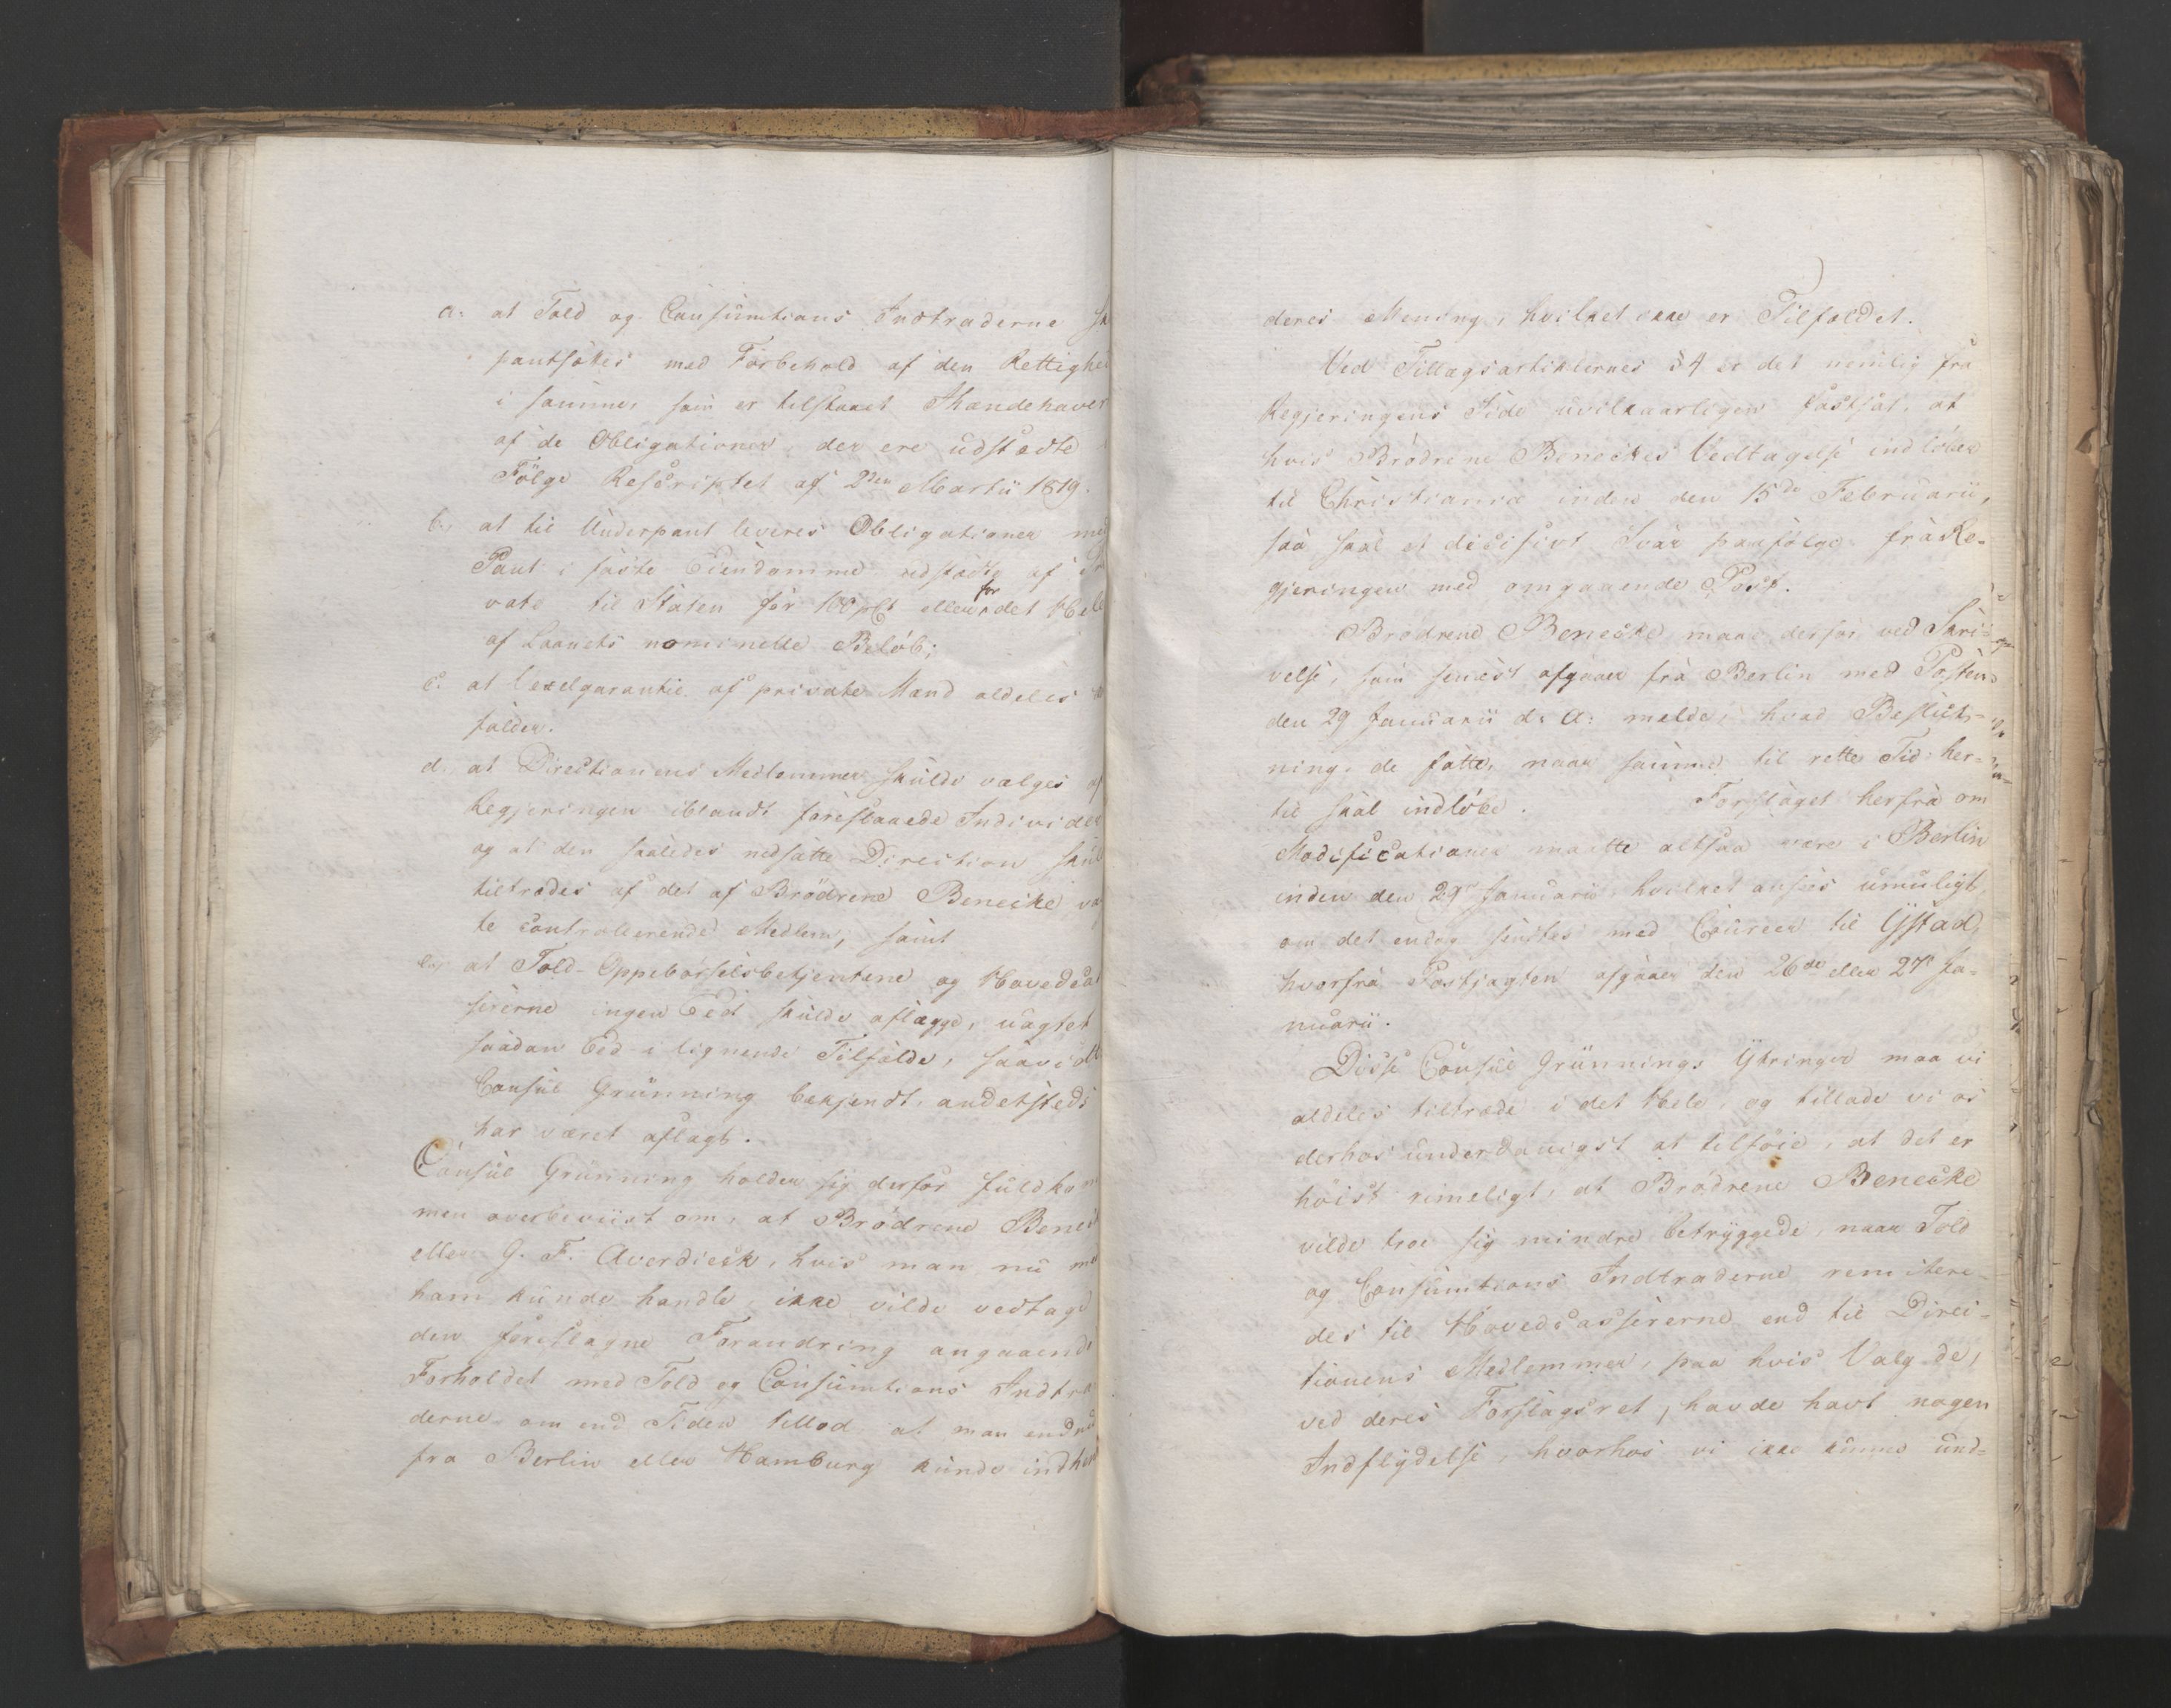 a. at Told og Consumtions Indtræderne sk
pantsættes med Forbehold af den Rettighed
i samme, som er tilstaaet Ihændehaver
af de Obligationer, der ere udstædte
Følge Rescriptet af 2den Martii 1819.
b. at til Underpant leveres Obligationer med
Pant i faste Eiendomme udstædte af
vate til Staten for 100 pCt eller for det Hele
af Laanets nominelle Beløb;
c. at Vexelgarantie af private Mænd aldeles
falder.
d. at Directionens Medlemmer skulde vælges af
Regjeringen iblandt foreslaaede Individer
og at den saaledes nedsatte Direction skul
tiltrædes af det af Brødrene Benecke val
te controllerende Medlem; samt
e. at Told-Oppebørselsbetjentene og Hovedcas
sererne ingen Eed skulde aflægge, uagtet
saadan Eed i lignende Tilfælde, saavidt
Consul Grünning bekjendt, andetsteds
har været aflagt.
Consul Grünning holder sig derfor fuldkom
men overbeviist om, at Brødrene Beneck
eller G. F. Averdieck, hvis man nu med
ham kunde handle ikke vilde vedtage
den foreslagne Forandring angaaende
Forholdet med Told og Consumtions Indtræ
derne om end Tiden tillod at man endnu
fra Berlin eller Hamburg kunde indhente
deres Mening, hvilket ikke er Tilfældet.
Ved Tillægsartiklernes § 4 er det nemlig fra
Regjeringens Side uvilkaarligen fastsat, at
hvis Brødrene Beneckes Vedtagelse indløber
til Christiania inden den 15de Februarii,
saa skal et decisivt Svar paafølge fra Re-
gjeringen med omgaaende Post.
Brødrene Benecke maae derfor ved Skri-
velse, som senest afgaaer fra Berlin med Posten
den 29 Januarii d: A: melde, hvad Beslut-
ning de fatte, naar samme til rette Tid her-
til skal indløbe. Forslaget herfra om
Modificationer maatte altsaa være i Berlin
inden den 29de Januarii, hvilket ansees umuligt,
om det endog sendtes med Coureer til Ystad,
hvorfra Postjagten afgaaer den 26de eller 27de Ja-
nuarii.
Disse Consul Grünnings Yttringer maa vi
aldeles tiltræde i det Hele, og tillade vi os
derhos underdanigst at tilføie, at det er
høist rimeligt, at Brødrene Benecke
vilde troe sig mindre betryggede, naar Told
og Consumtions Indtræderne remittere-
des til Hovedcassererne end til Direc-
tionens Medlemmer, paa hvis Valg de,
ved deres Forslagsret, havde havt nogen
Indflydelse, hvorhos vi ikke kunne und-